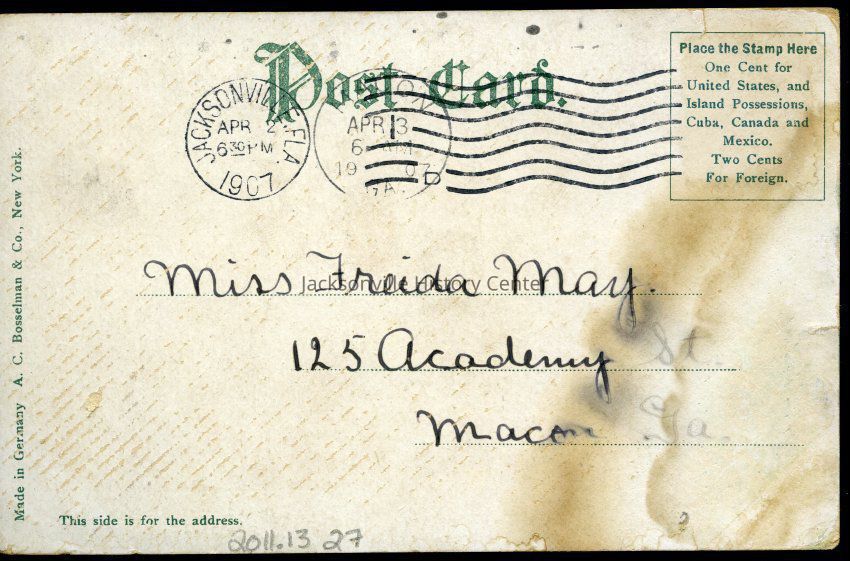 Post Card.
Place the Stamp Here
One Cent for
United States, and
Island Possessions,
Cuba, Canada and
Mexico.
Two Cents
For Foreign.
JACKSONVILLE, FLA.
APR 2
6 30 PM
1907
APR 3
6 AM
1907
GA.
D
Miss Freida May.
Jacksonville History Center
125 Academy St
Macon Ga.
Made in Germany A. C. Bosselman & Co., New York.
This side is for the address.
2011.13 27